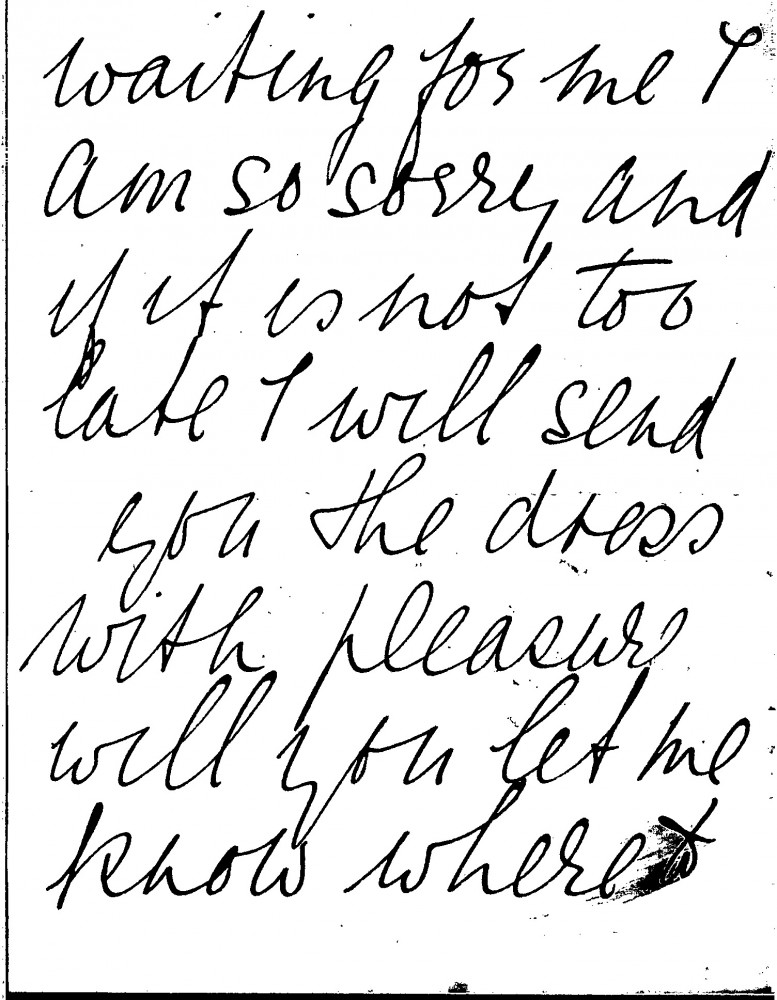 waiting for me I
am so sorry and
if it is not too
late I will send
you the dress
with pleasure
will you let me
know where